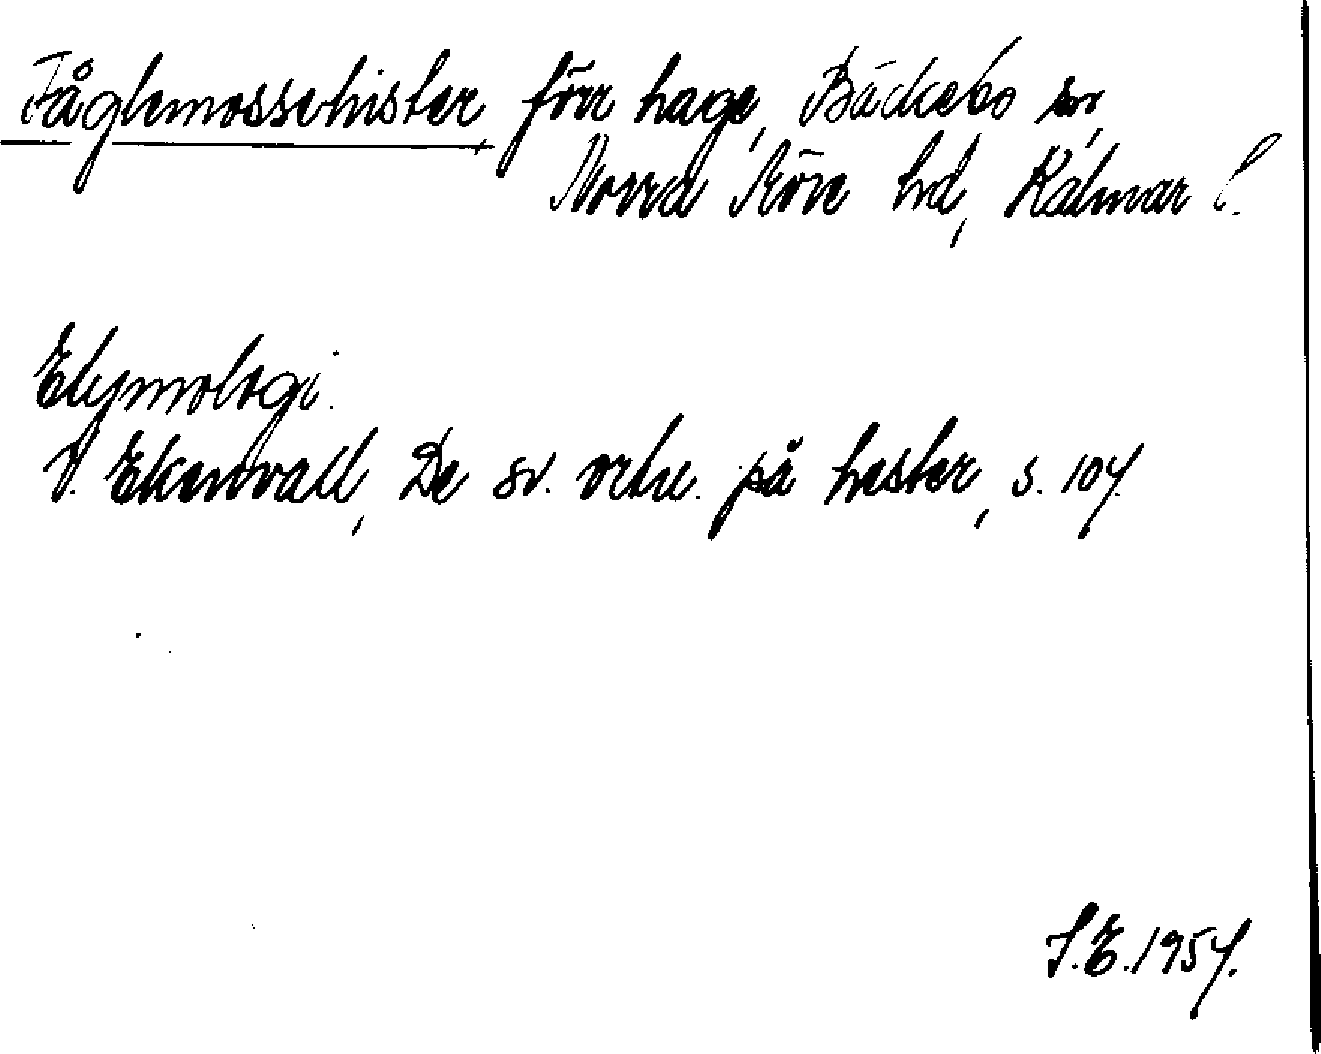 Fåglemossehister, förr hage, Bäckebo sn,
Norra Möre hd, Kalmar l.
Etymologi.
V. Ekenvall, De sv. ortn. på hester, s. 104.
S.E. 1954.